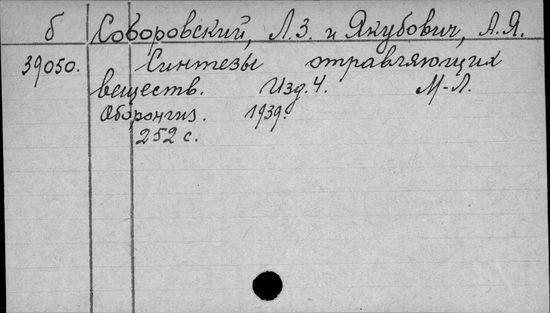 б Соборовский, Л.З. и Якубович, А.Я.
39050. Синтезы отравляющих
веществ. Изд. 4. М-Л.
Оборонгиз. 1939.
252 с.